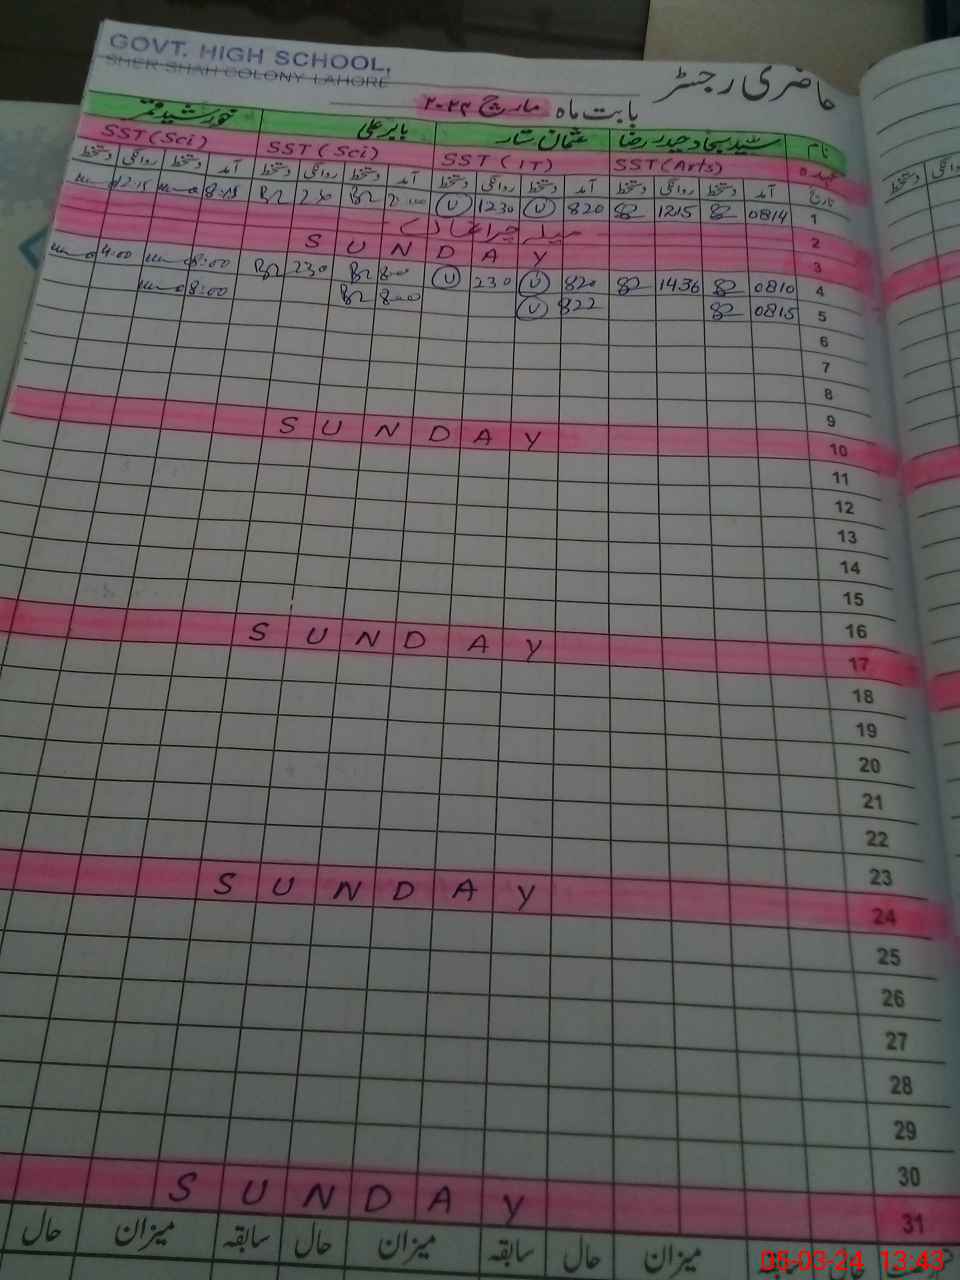 GOVT. HIGH SCHOOL,
SHER SHAH COLONY LAHORE
حاضری رجسٹر
بابت ماہ مارچ ۲۰۲۴
نام سید سجاد حیدر رضا عثمان ستار بابر علی خورشید
عہدہ SST (Arts) SST (IT) SST (Sci) SST (Sci)
تاریخ آمد دستخط روانگی دستخط آمد دستخط روانگی دستخط آمد دستخط روانگی دستخط آمد دستخط روانگی دستخط
1 0814 1215 820 1230 230 8:15 12:15
2 میلہ چراغاں
3 SUNDAY
4 0810 1436 820 230 800 230 8:00 4:00
5 0815 822 800 8:00
6
7
8
9
10 SUNDAY
11
12
13
14
15
16
17 SUNDAY
18
19
20
21
22
23
24 SUNDAY
25
26
27
28
29
30
31 SUNDAY
میزان حال سابقہ میزان حال سابقہ میزان حال
05-03-24 13:43